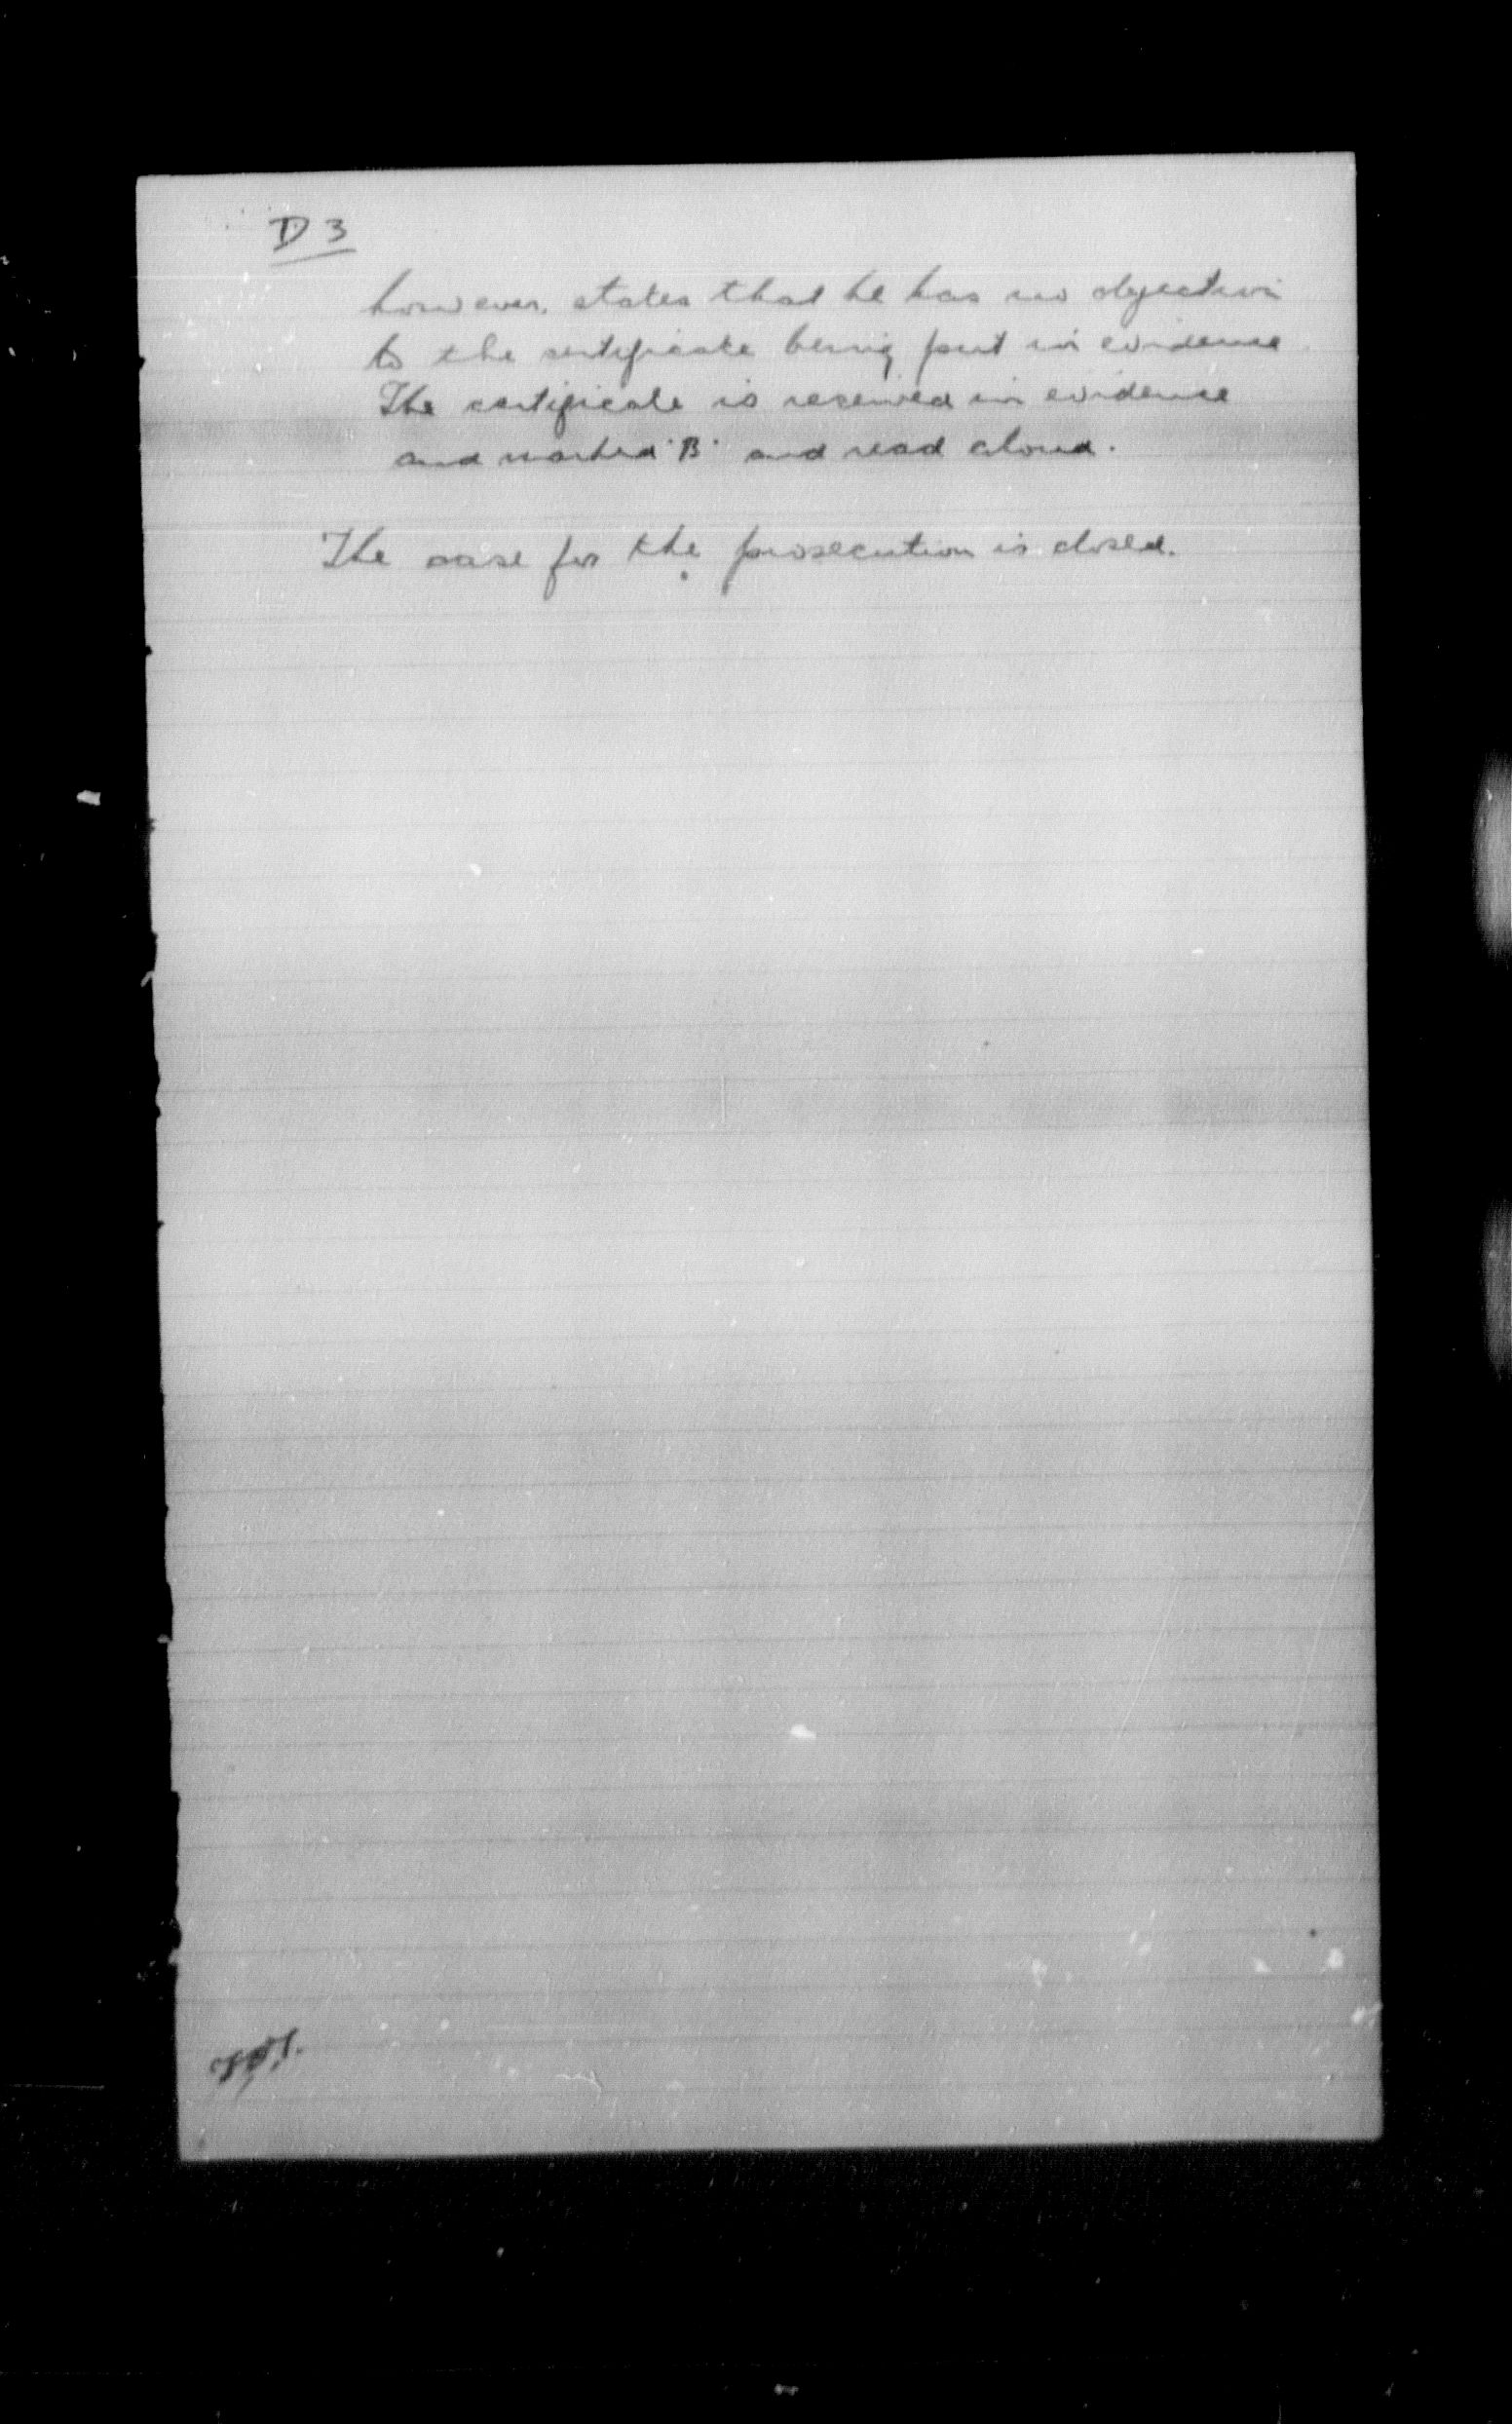 D 3
however, states that he has no objection
to the certificate being put in evidence
The certificate is received in evidence
and marked "B" and read aloud.
The case for the prosecution is closed.